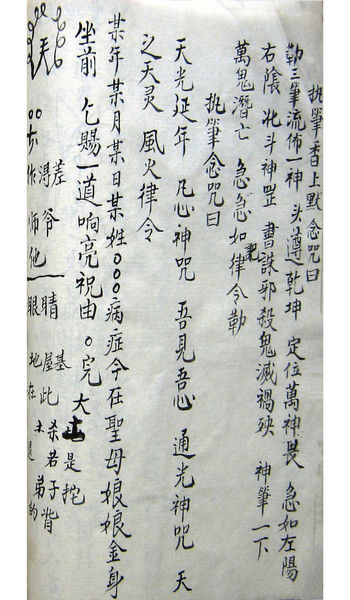 执筆香上默念咒曰
勒三筆流佈一神 头遵乾坤 定位萬神畏 急如左陽
右陰 北斗神罡 書誅邪殺鬼滅禍殃 神筆一下
萬鬼潛亡 急急如律令勒
执筆念咒曰
天光延年 凡心神咒 吾見吾心 通光神咒 天
之天灵 風火律令
某年某月某日某姓○○○病症今在聖母娘娘金身
坐前 乞賜一道响亮祝由○完
大 是挖
差 爷 睛 基 此 杀若子背
作 师他 眼 地在 土 弟的